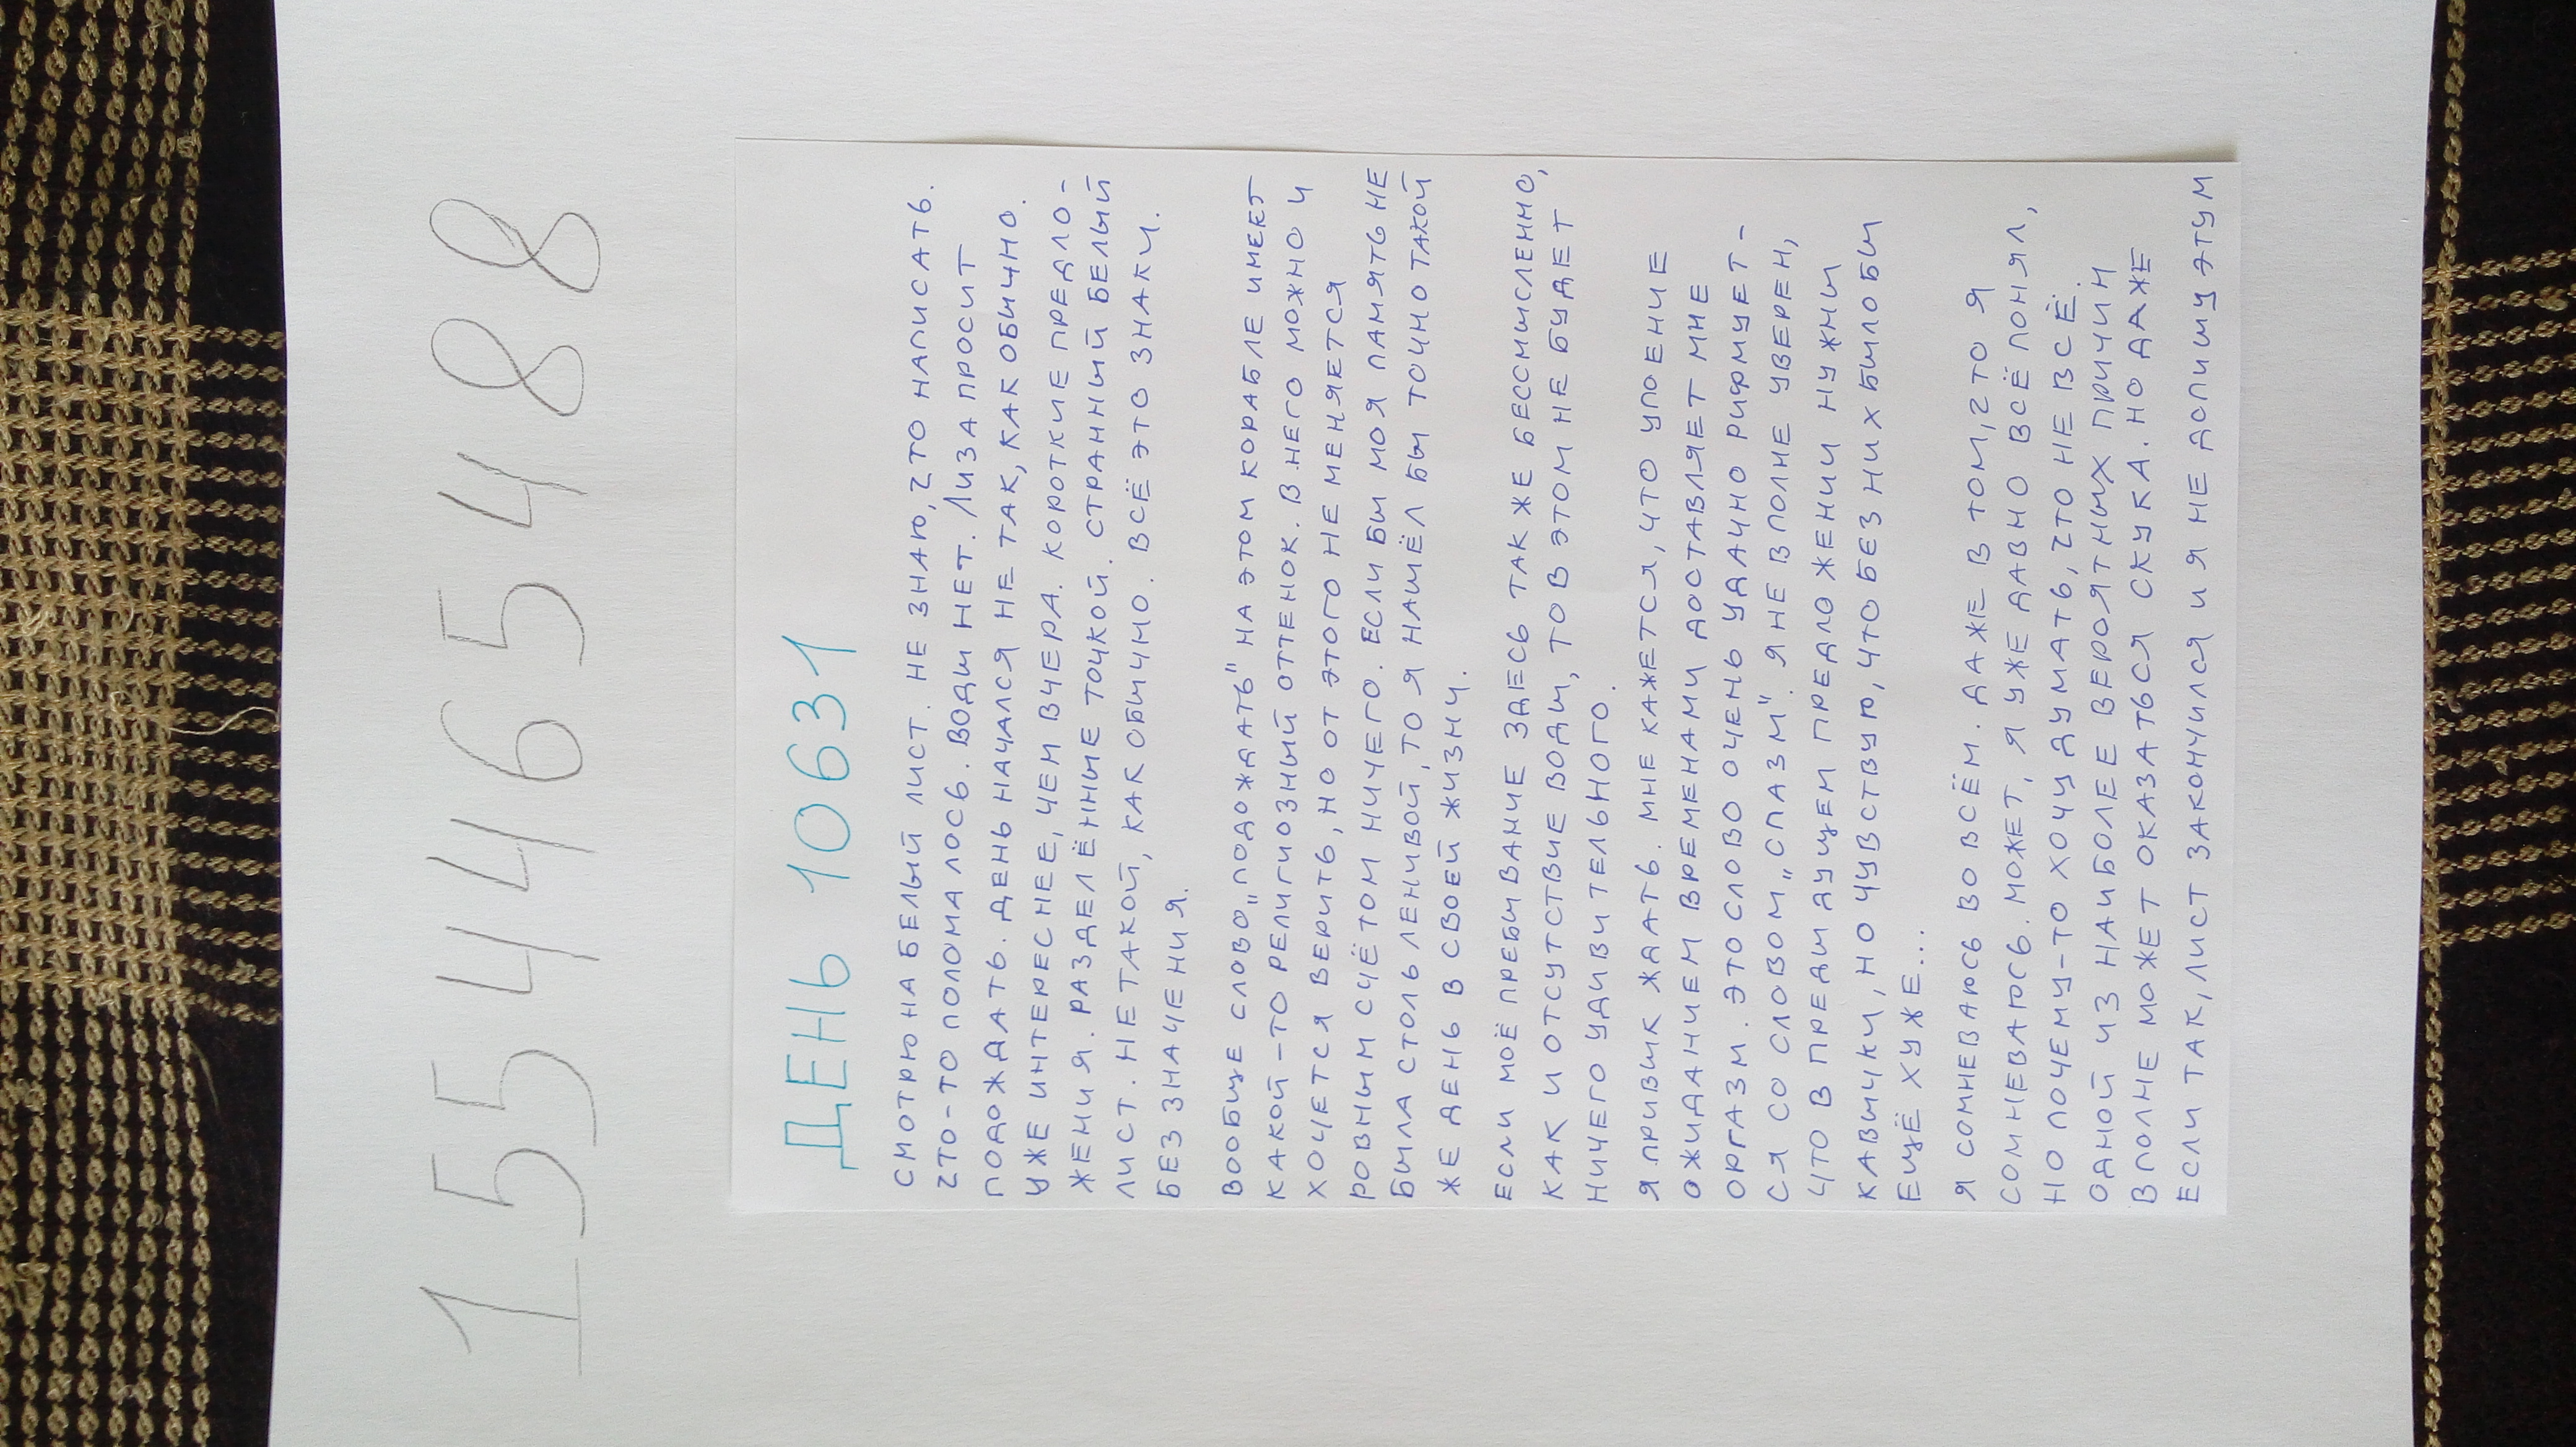 155465488
ДЕНЬ 10631
СМОТРЮ НА БЕЛЫЙ ЛИСТ. НЕ ЗНАЮ, ЧТО НАПИСАТЬ.
ЧТО-ТО ПОЛОМАЛОСЬ. ВОДЫ НЕТ. ЛИЗА ПРОСИТ
ПОДОЖДАТЬ. ДЕНЬ НАЧАЛСЯ НЕ ТАК, КАК ОБЫЧНО.
УЖЕ ИНТЕРЕСНЕЕ, ЧЕМ ВЧЕРА. КОРОТКИЕ ПРЕДЛО-
ЖЕНИЯ. РАЗДЕЛЁННЫЕ ТОЧКОЙ. СТРАННЫЙ БЕЛЫЙ
ЛИСТ. НЕ ТАКОЙ, КАК ОБЫЧНО. ВСЁ ЭТО ЗНАКИ.
БЕЗ ЗНАЧЕНИЯ.
ВООБЩЕ СЛОВО „ПОДОЖДАТЬ" НА ЭТОМ КОРАБЛЕ ИМЕЕТ
КАКОЙ-ТО РЕЛИГИОЗНЫЙ ОТТЕНОК. В НЕГО МОЖНО И
ХОЧЕТСЯ ВЕРИТЬ, НО ОТ ЭТОГО НЕ МЕНЯЕТСЯ
РОВНЫМ СЧЁТОМ НИЧЕГО. ЕСЛИ БЫ МОЯ ПАМЯТЬ НЕ
БЫЛА СТОЛЬ ЛЕНИВОЙ, ТО Я НАШЁЛ БЫ ТОЧНО ТАКОЙ
ЖЕ ДЕНЬ В СВОЕЙ ЖИЗНИ.
ЕСЛИ МОЁ ПРЕБЫВАНИЕ ЗДЕСЬ ТАК ЖЕ БЕССМЫСЛЕННО,
КАК И ОТСУТСТВИЕ ВОДЫ, ТО В ЭТОМ НЕ БУДЕТ
НИЧЕГО УДИВИТЕЛЬНОГО.
Я ПРИВЫК ЖДАТЬ. МНЕ КАЖЕТСЯ, ЧТО УПОЕНИЕ
ОЖИДАНИЕМ ВРЕМЕНАМИ ДОСТАВЛЯЕТ МНЕ
ОРГАЗМ. ЭТО СЛОВО ОЧЕНЬ УДАЧНО РИФМУЕТ-
СЯ СО СЛОВОМ „СПАЗМ". Я НЕ ВПОЛНЕ УВЕРЕН,
ЧТО В ПРЕДЫДУЩЕМ ПРЕДЛОЖЕНИИ НУЖНЫ
КАВЫЧКИ, НО ЧУВСТВУЮ, ЧТО БЕЗ НИХ БЫЛО БЫ
ЕЩЁ ХУЖЕ...
Я СОМНЕВАЮСЬ ВО ВСЁМ. ДАЖЕ В ТОМ, ЧТО Я
СОМНЕВАЮСЬ. МОЖЕТ, Я УЖЕ ДАВНО ВСЁ ПОНЯЛ,
НО ПОЧЕМУ-ТО ХОЧУ ДУМАТЬ, ЧТО НЕ ВСЁ.
ОДНОЙ ИЗ НАИБОЛЕЕ ВЕРОЯТНЫХ ПРИЧИН
ВПОЛНЕ МОЖЕТ ОКАЗАТЬСЯ СКУКА. НО ДАЖЕ
ЕСЛИ ТАК, ЛИСТ ЗАКОНЧИЛСЯ И Я НЕ ДОПИШУ ЭТУ М